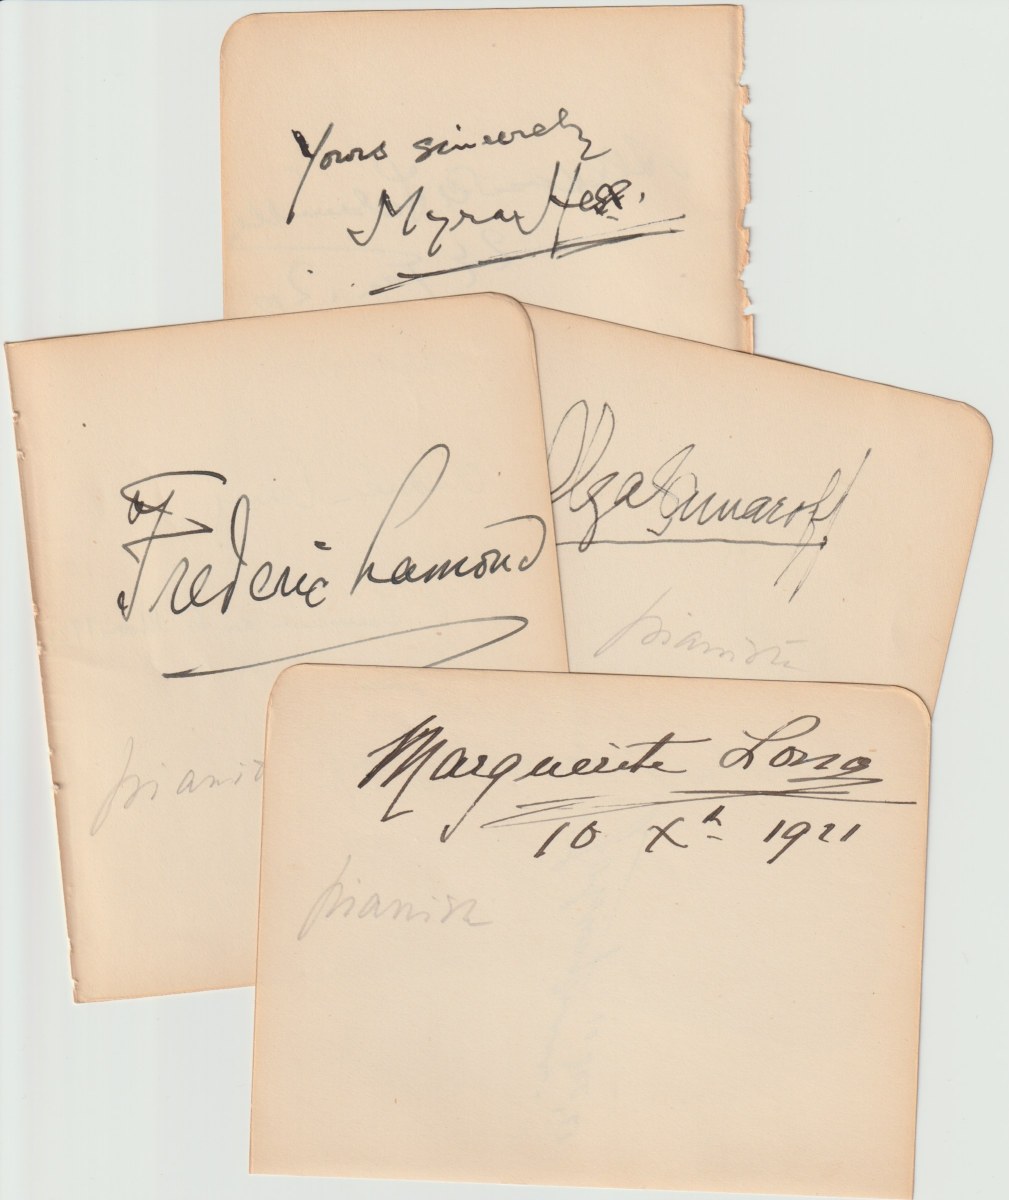 Yours sincerely
Myra Hess.
Frederic Lamond
pianist
Olga Samaroff
pianist
Marguerite Long
10 Xh 1921
pianist